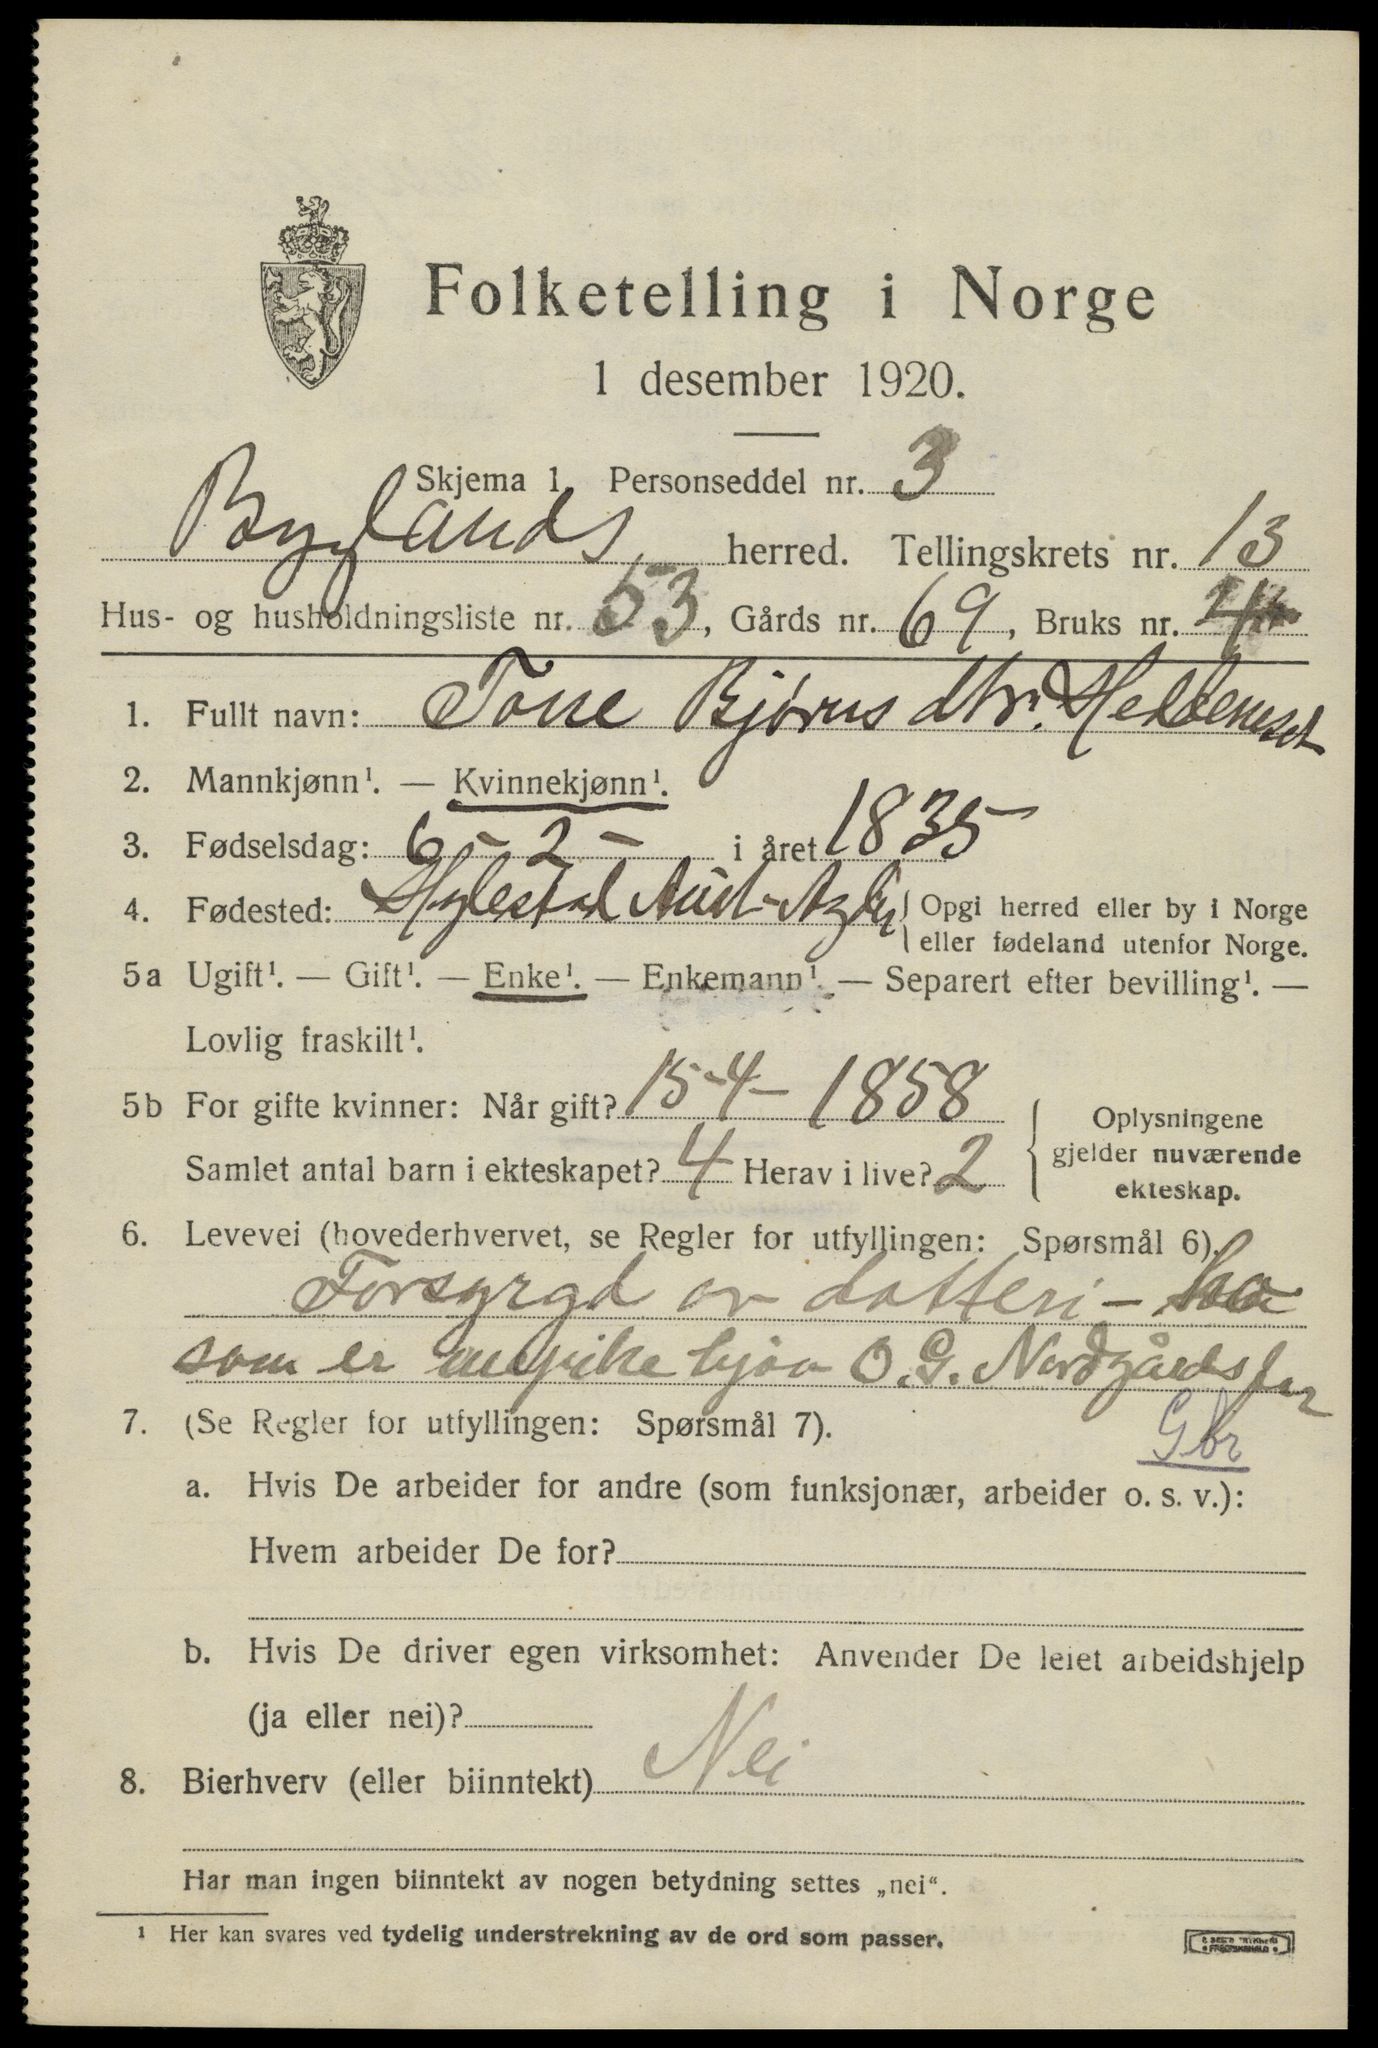 Folketelling i Norge
1 desember 1920.
Skjema 1. Personseddel nr. 3
Byglands herred. Tellingskrets nr. 13
Hus- og husholdningsliste nr. 53, Gårds nr. 69, Bruks nr.
1. Fullt navn: Tone Bjørns dtr. Heddeneset
2. Mannkjønn¹. — Kvinnekjønn¹.
3. Fødselsdag: 6 - 2 - i året 1835
4. Fødested: Hylestad Aust-Agder { Opgi herred eller by i Norge
eller fødeland utenfor Norge.
5a Ugift¹. — Gift¹. — Enke¹. — Enkemann¹. — Separert efter bevilling¹. —
Lovlig fraskilt¹.
5b For gifte kvinner: Når gift? 15-4- 1858
Samlet antal barn i ekteskapet? 4 Herav i live? 2
{ Oplysningene
gjelder nuværende
ekteskap.
6. Levevei (hovederhvervet, se Regler for utfyllingen: Spørsmål 6).
Forsyrgd av datteri -
som er hjaa O. G. Nordgårds
7. (Se Regler for utfyllingen: Spørsmål 7).
Gbr
a. Hvis De arbeider for andre (som funksjonær, arbeider o. s. v.):
Hvem arbeider De for?
b. Hvis De driver egen virksomhet: Anvender De leiet arbeidshjelp
(ja eller nei)?
8. Bierhverv (eller biinntekt) Nei
Har man ingen biinntekt av nogen betydning settes „nei“.
¹ Her kan svares ved tydelig understrekning av de ord som passer.